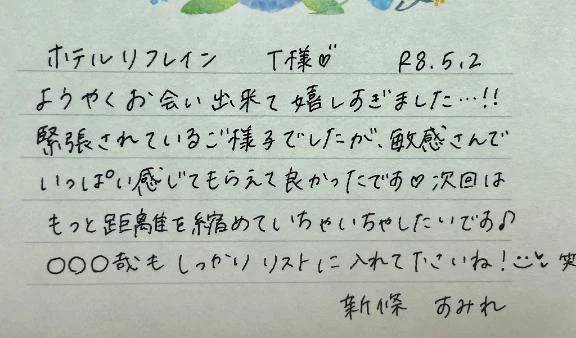 ホテルリフレイン　T様♡　R8.5.2
ようやくお会い出来て嬉しすぎました…!!
緊張されているご様子でしたが、敏感さんで
いっぱい感じてもらえて良かったです♡次回は
もっと距離を縮めていちゃいちゃしたいです♪
〇〇〇哉もしっかりリストに入れてださいね!
新條　すみれ